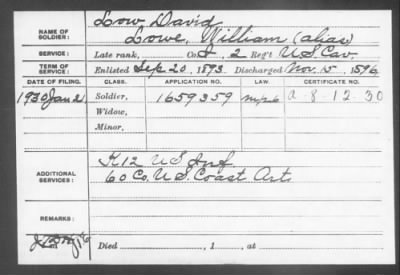 NAME OF SOLDIER: Low David
Lowe, William (alias)
SERVICE: Late rank, Co. I, 2 Reg't U.S. Cav.
TERM OF SERVICE: Enlisted Sep. 20, 1893 Discharged Nov. 15, 1896
DATE OF FILING. CLASS. APPLICATION NO. LAW. CERTIFICATE NO.
1930 Jan 2 Soldier, 1659359 8 12 30
Widow,
Minor,
ADDITIONAL SERVICES: K 12 U S Inf
60 Co. U.S. Coast Art.
REMARKS:
Died , 1 , at